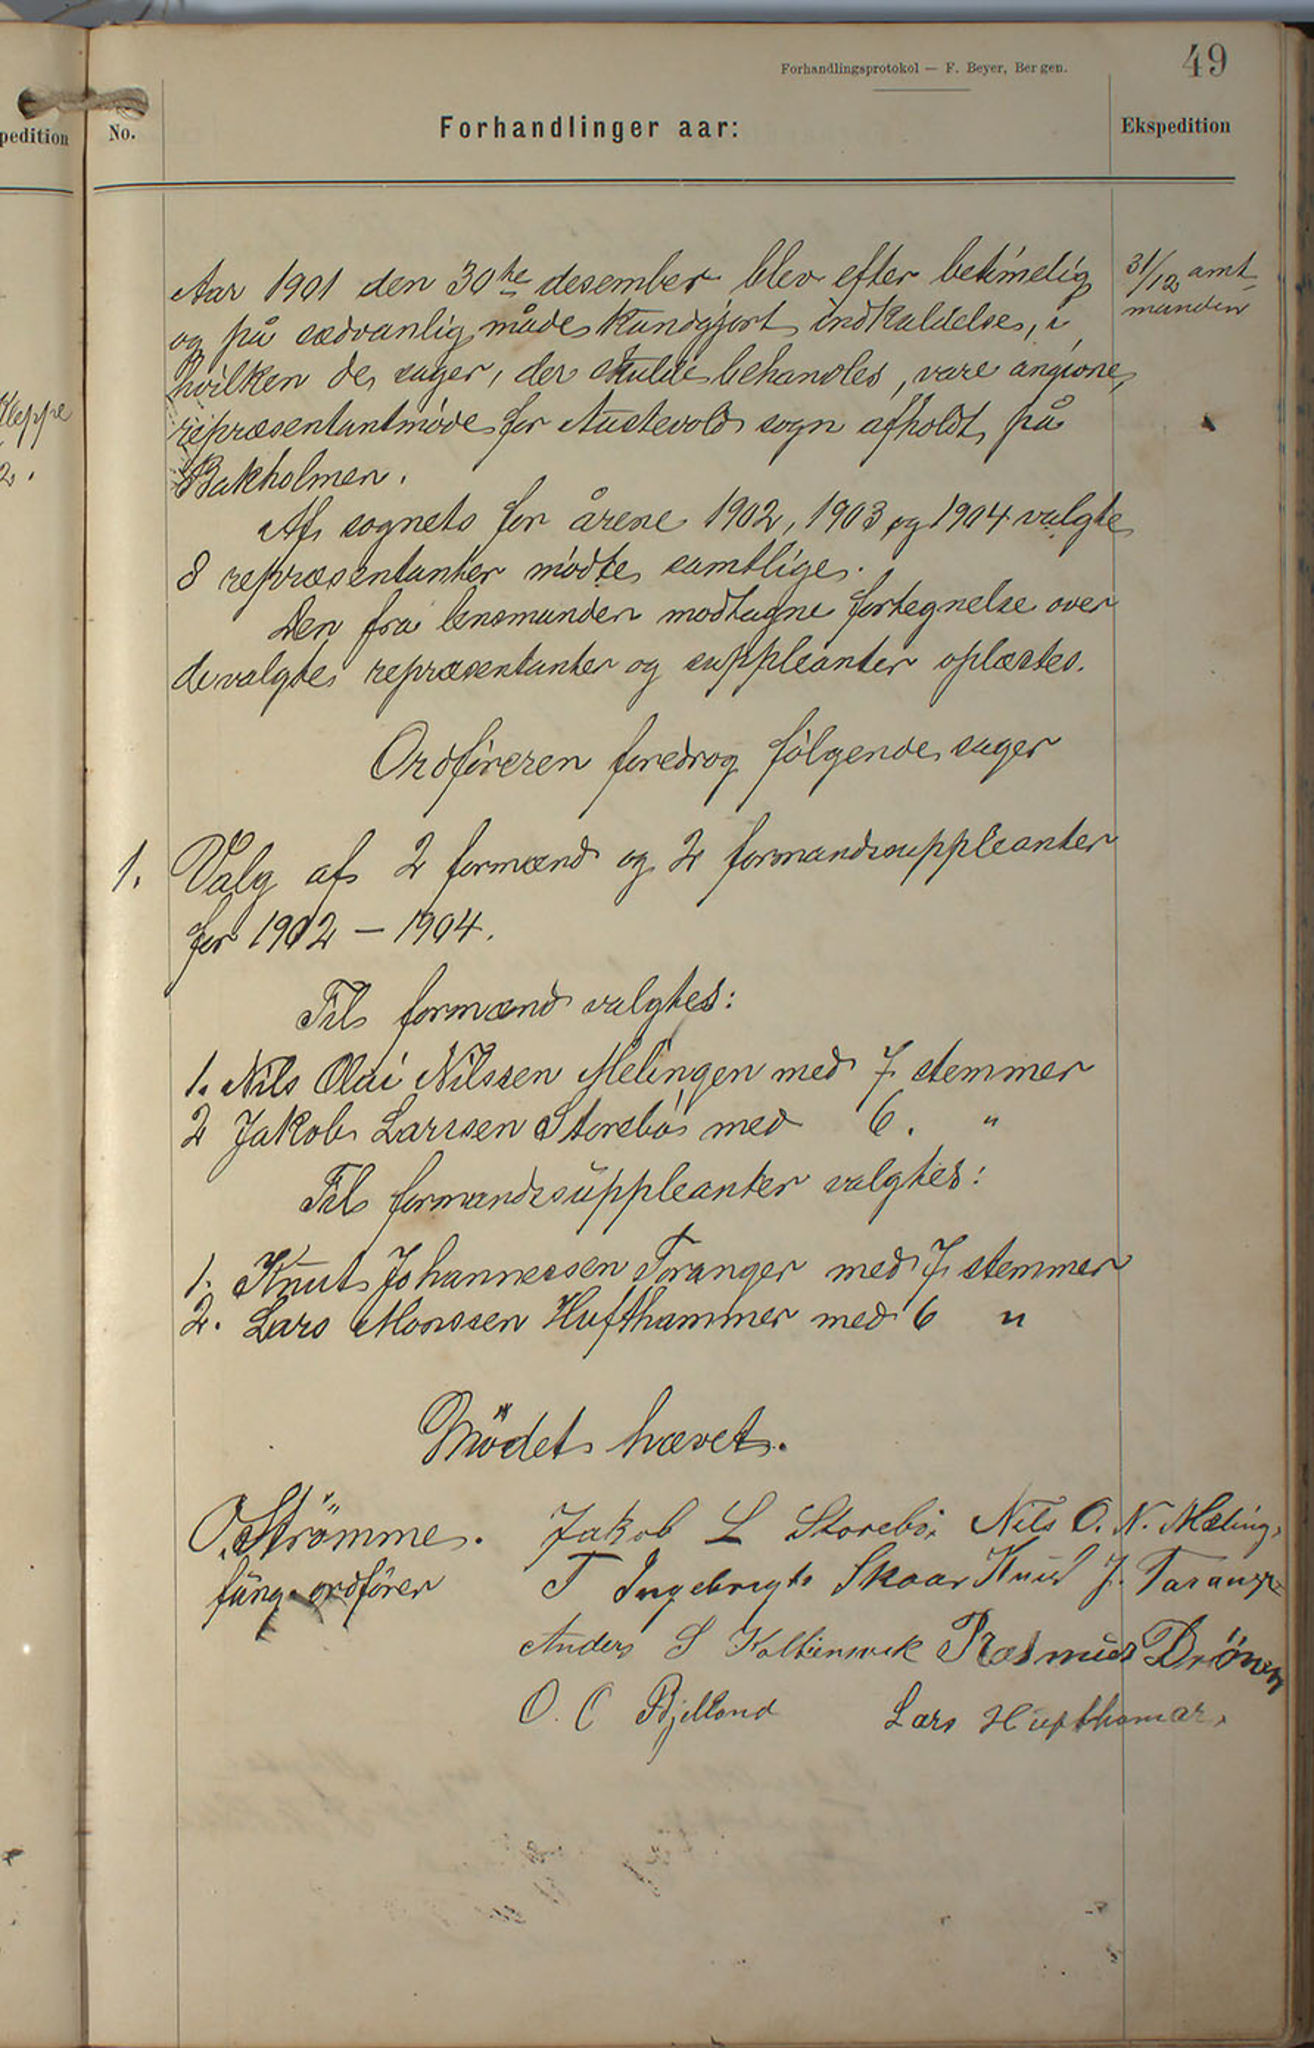 Forhandlingsprotokol — F. Beyer, Bergen.
49
pedition
No.
Forhandlinger aar:
Ekspedition
Kleppe
2.
Aar 1901 den 30te desember blev efter betimelig
og på sædvanlig måde kundgjort indkaldelse, i
hvilken de sager, der skulde behandles, vare angivne,
repræsentantmöde for Austevold sogn afholdt på
Bakholmen.
31/12 amt-
manden
Af sognets for årene 1902, 1903 og 1904 valgte
8 repræsentanter mödte samtlige.
Den fra lensmanden modtagne fortegnelse over
de valgte repræsentanter og suppleanter oplæstes.
Ordföreren foredrog fölgende sager
1. Valg af 2 formænd og 2 formandssuppleanter
for 1902 — 1904.
Til formænd valgtes:
1. Nils Olai Nilssen Melingen med 7 stemmer
2 Jakob Larssen Storebö med 6. "
Til formandssuppleanter valgtes:
1. Knut Johannessen Toranger med 7 stemmer
2. Lars Monssen Hufthammer med 6 "
Mödet hævet.
O. Strömme. Jakob L Storebö. Nils O. N. Mæling,
fung. ordförer T Ingebrigts Skaar Knud J. Taranger
Anders S Kolbensvik Rasmus Drönen
O. C Bjelland Lars Hufthamar.